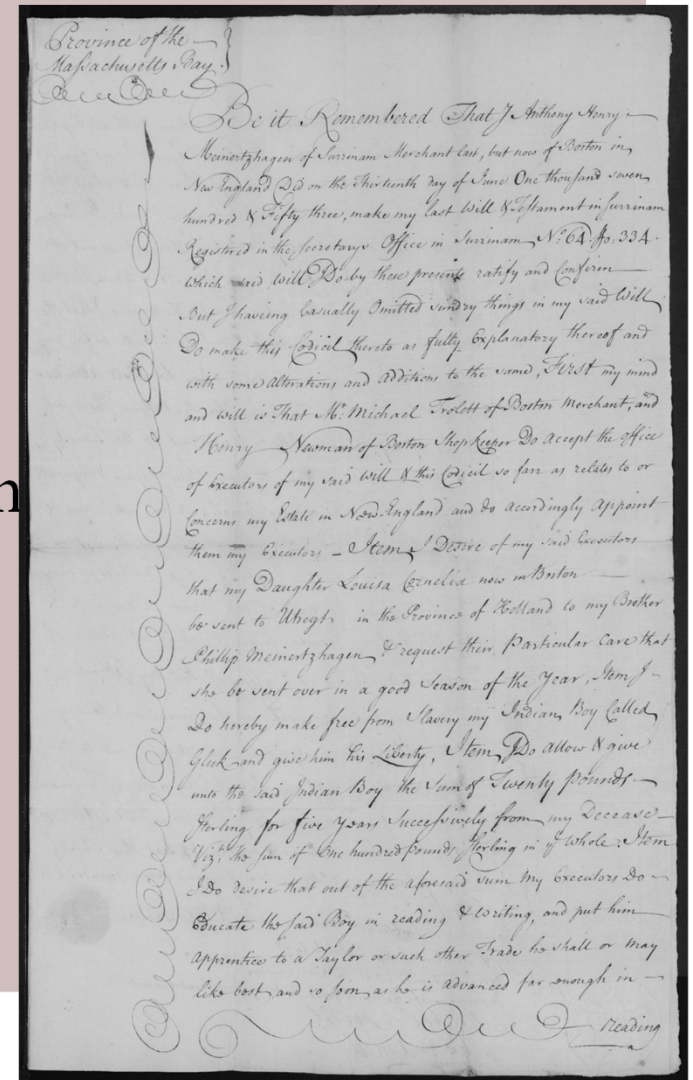 Province of the
Massachusetts Bay.
Be it Remembered That I Anthony Henry
Meinertzhagen of Surrinam Merchant last, but now of Boston in
New England Did on the Thirteenth day of June One thousand seven
hundred & Fifty three, make my last Will & Testament in Surrinam
Registred in the Secretarys Office in Surrinam No. 64. fo. 334.
which said will I Do by these presents ratify and Confirm
But I haveing Casually Omitted sundry things in my said Will
Do make this Codicil thereto as fully Explanatory thereof and
with some alterations and additions to the same, First my mind
and will is That Mr. Michael Trolott of Boston Merchant, and
Henry Newman of Boston Shopkeeper Do accept the office
of Executors of my said Will & this Codicil so farr as relates to or
Concerns my Estate in New England and do accordingly appoint
them my Executors – Item, I Desire of my said Executors
that my Daughter Louisa Cornelia now in Boston
be sent to Utregt in the Province of Holland to my Brother
Phillip Meinertzhagen & request their Particular Care that
she be sent over in a good Season of the Year, Item I
Do hereby make free from Slavery my Indian Boy Called
and give him his Liberty, Item, I Do allow & give
unto the said Indian Boy the Sum of Twenty Pounds
Sterling for five Years Successively from my Decease
Vizt. the sum of One hundred pounds Sterling in ye Whole. Item
I do desire that out of the aforesaid sum my Executors Do
Educate the said Boy in reading & writing, and put him
Apprentice to a Taylor or such other Trade he shall or may
like best and so soon as he is advanced far enough in
reading
n